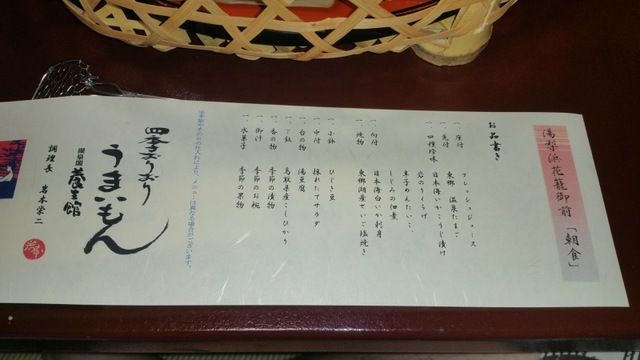 湯梨浜花籠御前「朝食」
お品書き
一、座付 フレッシュジュース
一、先付 東郷 温泉たまご
一、四種珍味 日本海いかこうじ漬け
岩のりイクラげ
辛子めんたいこ
しじみの佃煮
一、向付 日本海白いか刺身
一、焼物 東郷湖産でいご塩焼き
一、小鉢 ひじき豆
一、中付 採れたてサラダ
一、台の物 湯豆腐
一、ご飯 鳥取県産こしひかり
一、香の物 季節の漬物
一、御汁 季節のお椀
一、水菓子 季節の果物
季節やその日の仕入れにより、メニューは異なる場合がございます。
四季おりおり
うまいもん
湯泉閣 養生館
調理長 岩本栄二